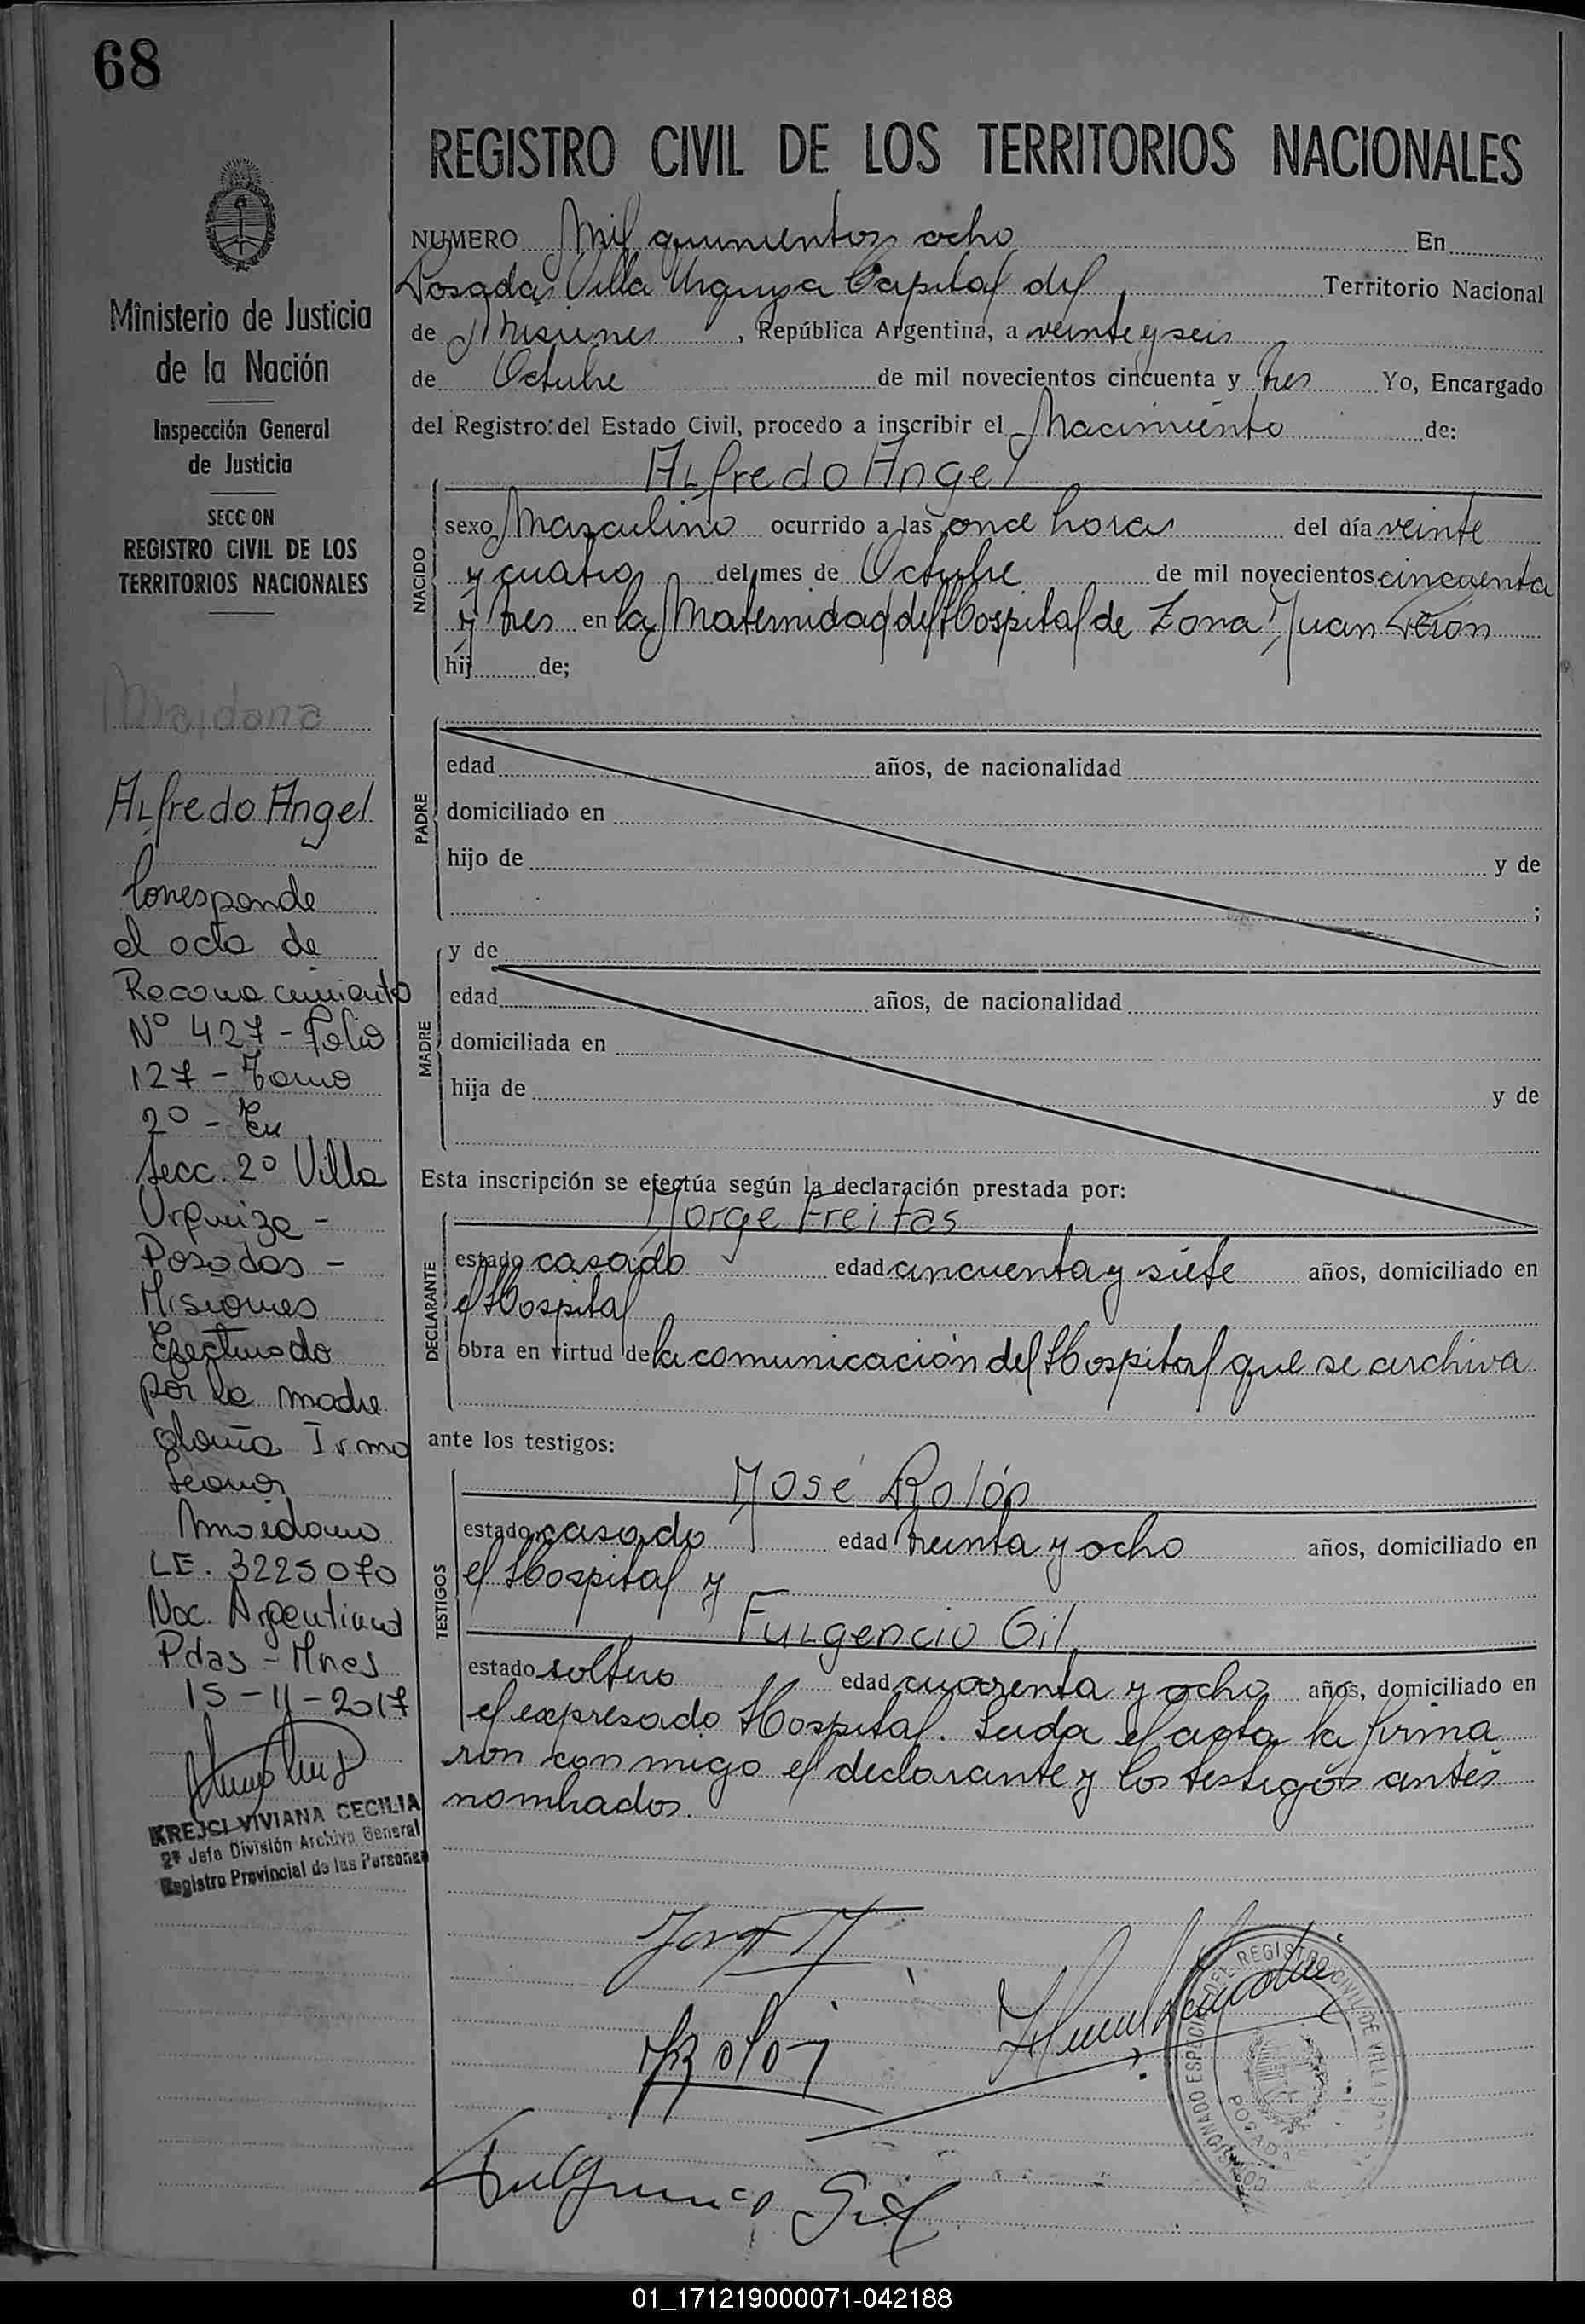 68
Ministerio de Justicia
de la Nación
Inspección General
de Justicia
SECCION
REGISTRO CIVIL DE LOS
TERRITORIOS NACIONALES
Maidana
Alfredo Angel
Corresponde
el acta de
Reconocimiento
Nº 427 - Folio
127 - Tomo
2º - En
Secc. 2º Villa
Urquiza -
Posadas -
Misiones
Efectuado
por la madre
Gloria Irma
Leonor
Maidana
LE. 3225070
Nac. Argentina
Pdas - Mnes
15-11-2017
KREJCI VIVIANA CECILIA
2ª Jefa División Archivo General
Registro Provincial de las Personas
REGISTRO CIVIL DE LOS TERRITORIOS NACIONALES
NUMERO Mil quinientos ocho En
Posadas Villa Urquiza Capital del Territorio Nacional
de Misiones, República Argentina, a veinte y seis
de Octubre de mil novecientos cincuenta y tres Yo, Encargado
del Registro del Estado Civil, procedo a inscribir el Nacimiento de:
Alfredo Angel
NACIDO
sexo Masculino ocurrido a las once horas del día veinte
y cuatro del mes de Octubre de mil novecientos cincuenta
y tres en la Maternidad del Hospital de Zona Juan Perón
hij de;
PADRE
edad años, de nacionalidad
domiciliado en
hijo de y de
;
MADRE
y de
edad años, de nacionalidad
domiciliada en
hija de y de
Esta inscripción se efectúa según la declaración prestada por:
Jorge Freitas
DECLARANTE
estado casado edad cincuenta y siete años, domiciliado en
el Hospital
obra en virtud de la comunicación del Hospital que se archiva
ante los testigos:
José Rolón
TESTIGOS
estado casado edad treinta y ocho años, domiciliado en
el Hospital y
Fulgencio Gil
estado soltero edad cuarenta y ocho años, domiciliado en
el expresado Hospital. Leida el acta la firma
ron conmigo el declarante y los testigos antes
nombrados.
JRolón
Fulgencio Gil
COMISIONADO ESPECIAL DEL REGISTRO CIVIL DE VILLA
POSADAS
01_171219000071-042188